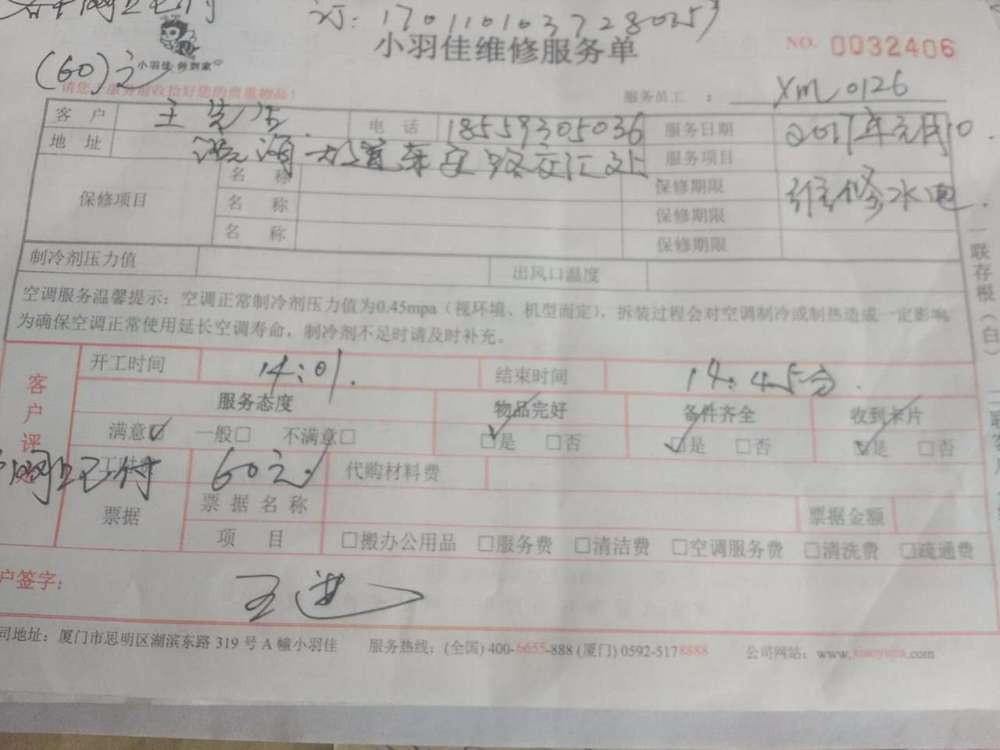 订: 1701101037280253
小羽佳维修服务单 NO. 0032406
小羽佳 到家
(60)元
服务员工 : XM0126
客 户 王先生 电 话 18559305036 服务日期 2017年元月10
地 址 服务项目 维修水电.
保修项目 名 称 保修期限
名 称 保修期限
名 称 保修期限
制冷剂压力值 出风口温度
空调服务温馨提示：空调正常制冷剂压力值为0.45mpa（视环境、机型而定），拆装过程会对空调制冷或制热造成一定影响
为确保空调正常使用延长空调寿命，制冷剂不足时请及时补充。
一联存根（白）
客户评
开工时间 14:01. 结束时间 14:45分.
服务态度 物品完好 备件齐全 收到卡片
满意☑ 一般□ 不满意□ ☑是 □否 ☑是 □否 ☑是 □否
网上已付 60元 代购材料费
票据 票 据 名 称 票据金额
项 目 □搬办公用品 □服务费 □清洁费 □空调服务费 □清洗费 □疏通费
户签字： 王进
司地址：厦门市思明区湖滨东路 319 号 A 幢小羽佳 服务热线：(全国) 400-6655-888 (厦门) 0592-5178888 公司网站：www.xiaoyujia.com